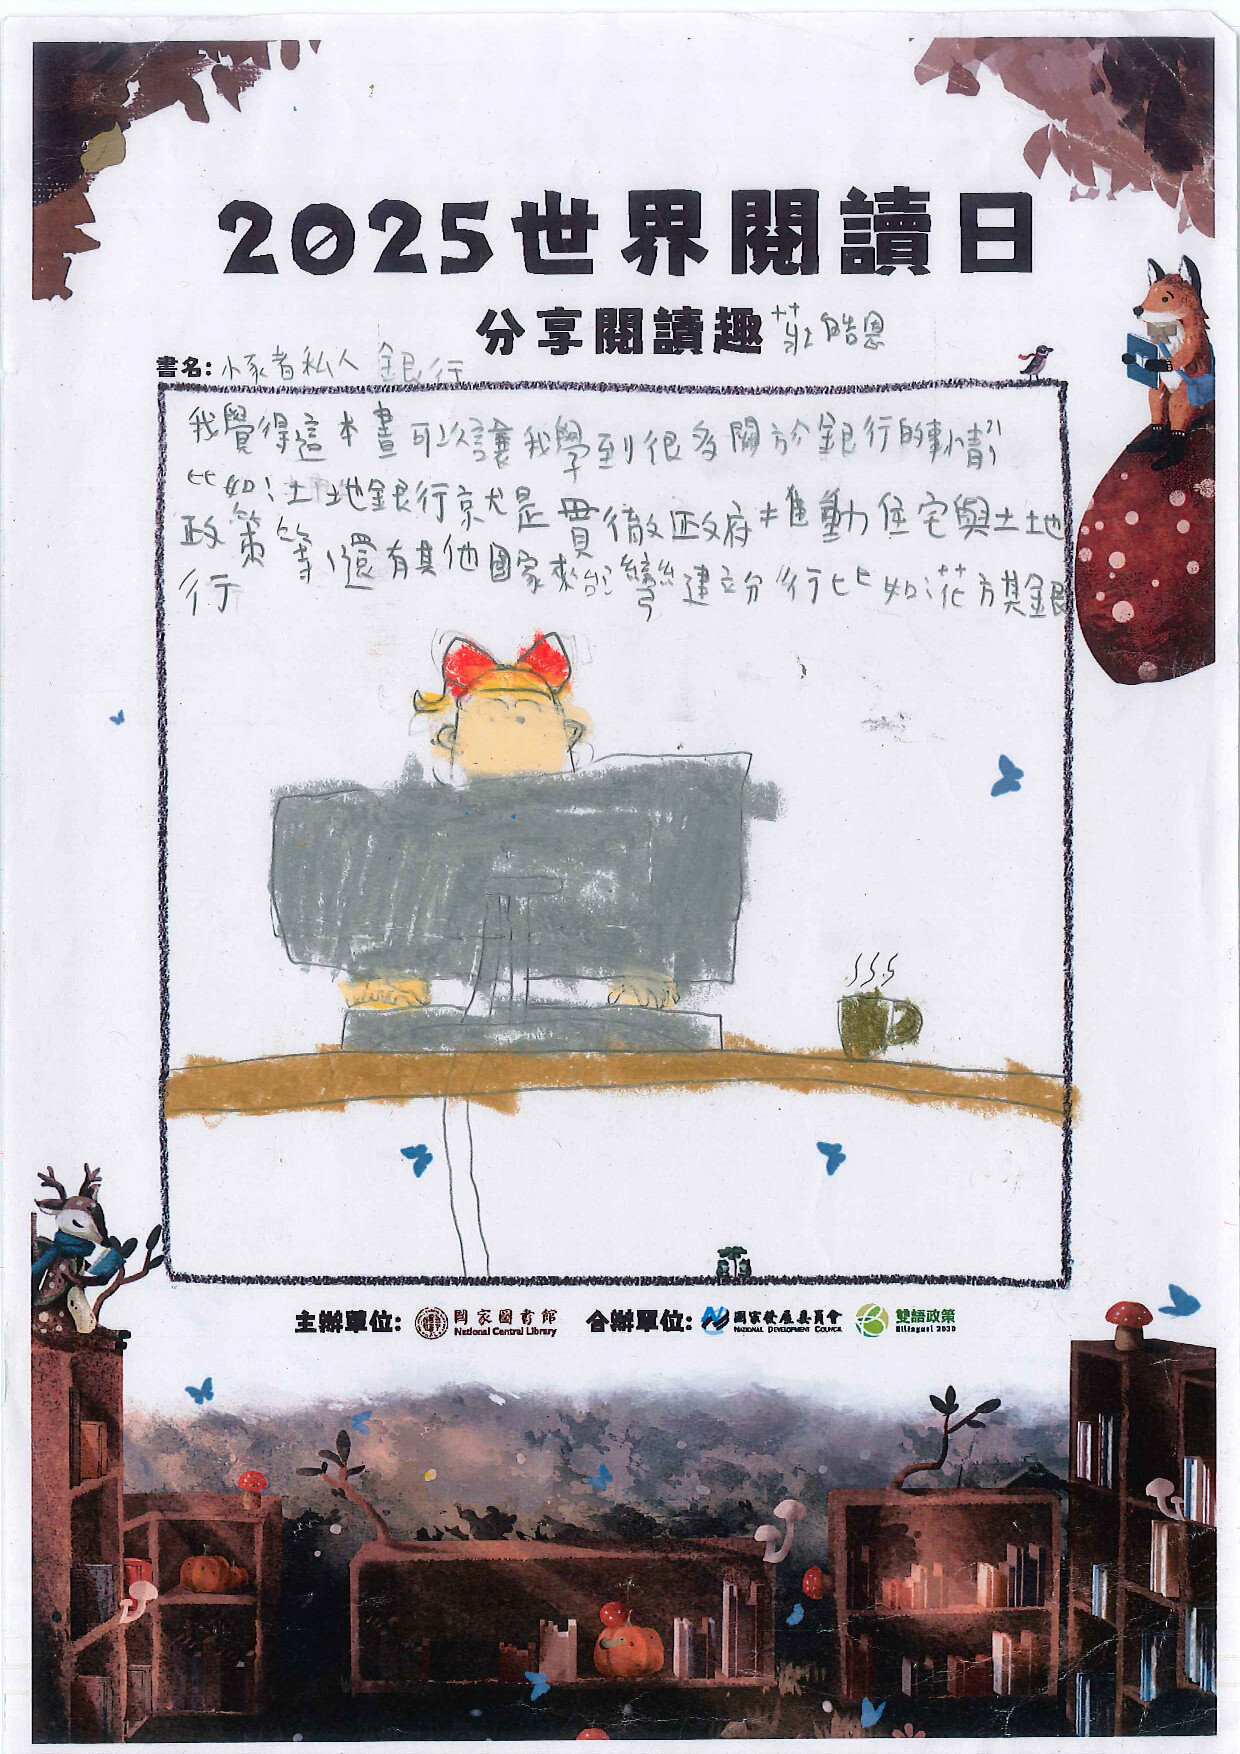 2025世界閱讀日
分享閱讀趣 莊皓恩
書名: 小豕者私人銀行
我覺得這本書可以讓我學到很多關於銀行的事情
比如:土地銀行京尤是貫徹政府推動住宅與土地
政策等,還有其他國家來台灣建立分行比如:花旗銀
行
主辦單位: 國家圖書館 National Central Library 合辦單位: 國家發展委員會 National Development Council 雙語政策 Bilingual 2030